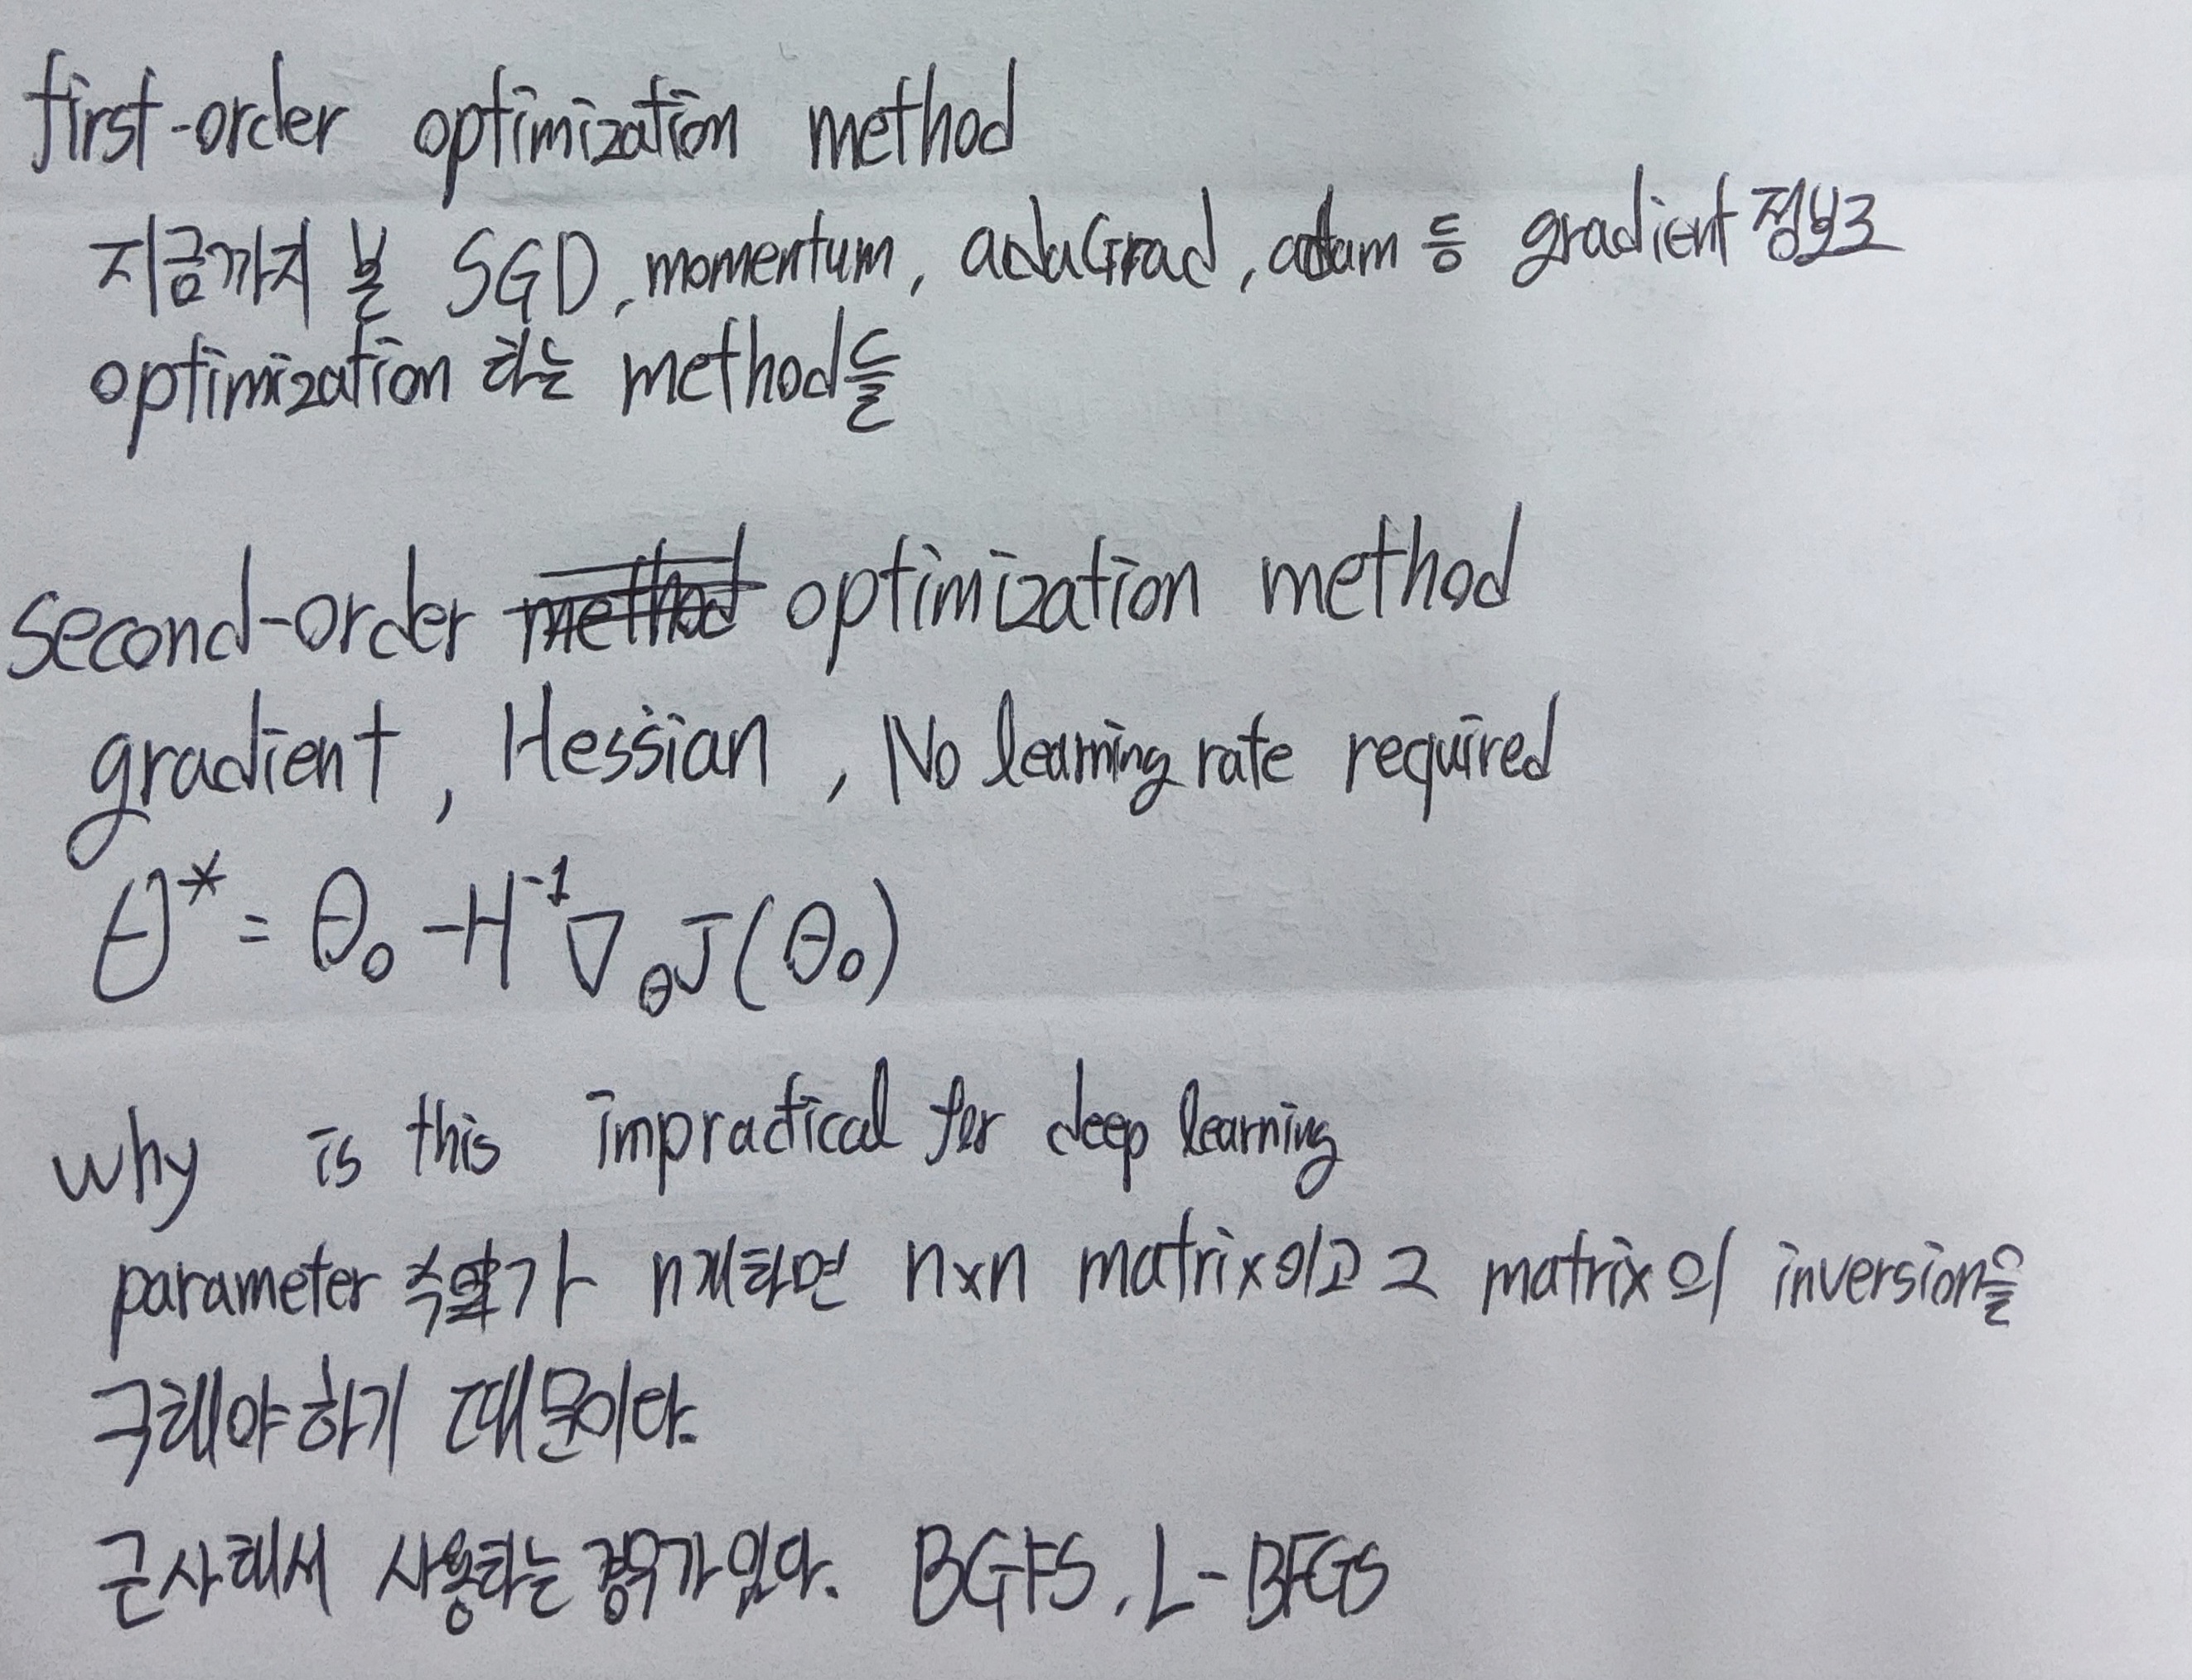 first-order optimization method
지금까지 본 SGD, momentum, adaGrad, adam 등 gradient 정보로
optimization 하는 method들
second-order method optimization method
gradient, Hessian, No learning rate required
θ* = θ₀ - H⁻¹∇_θ J(θ₀)
why is this impractical for deep learning
parameter 가 n개하면 n×n matrix이고 그 matrix의 inversion을
구해야하기 때문이다.
근사해서 사용하는 경우가 있다. BGFS, L-BFGS